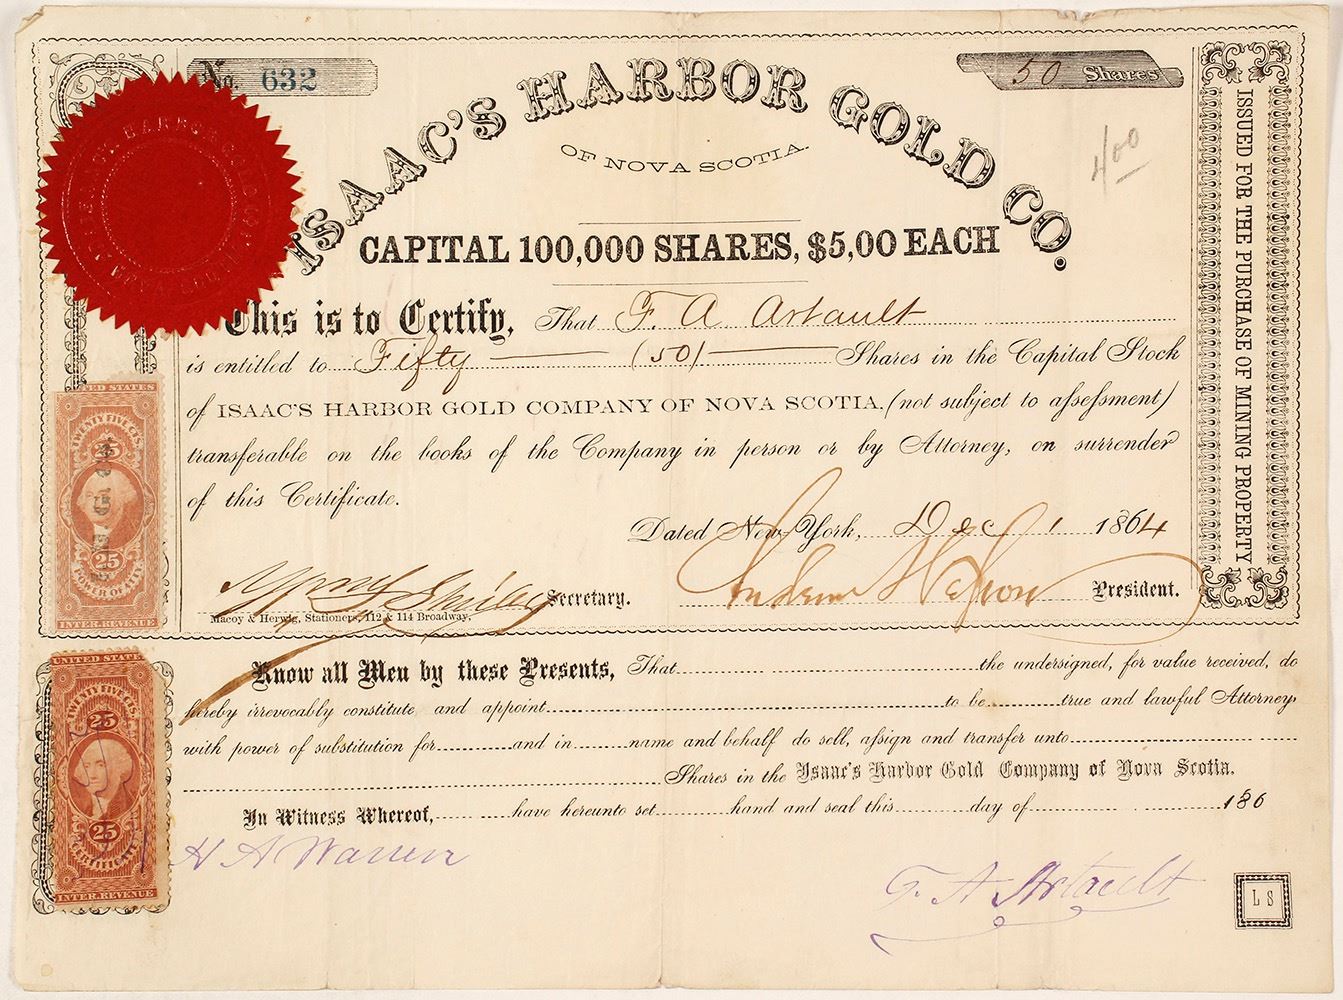 No. 632
50 Shares
ISAAC'S HARBOR GOLD CO.
OF NOVA SCOTIA.
400
CAPITAL 100,000 SHARES, $5,00 EACH
This is to Certify, That F. A Artault
is entitled to Fifty (50) Shares in the Capital Stock
of ISAAC'S HARBOR GOLD COMPANY OF NOVA SCOTIA, (not subject to assessment)
transferable on the books of the Company in person or by Attorney, on surrender
of this Certificate.
Dated New York, Dec 1 1864
Secretary. President.
Macoy & Herwig, Stationers, 112 & 114 Broadway,
ISSUED FOR THE PURCHASE OF MINING PROPERTY
UNITED STATES
TWENTY FIVE CTS.
25
25
POWER OF ATT'Y
INTER. REVENUE
Know all Men by these Presents, That the undersigned, for value received, do
hereby irrevocably constitute and appoint to be true and lawful Attorney
with power of substitution for and in name and behalf do sell, assign and transfer unto
Shares in the Isaac's Harbor Gold Company of Nova Scotia.
In Witness Whereof, have hereunto set hand and seal this day of 186
UNITED STATES
TWENTY FIVE CTS.
25
25
CERTIFICATE
INTER. REVENUE
H A Warren
F. A Artault
L S